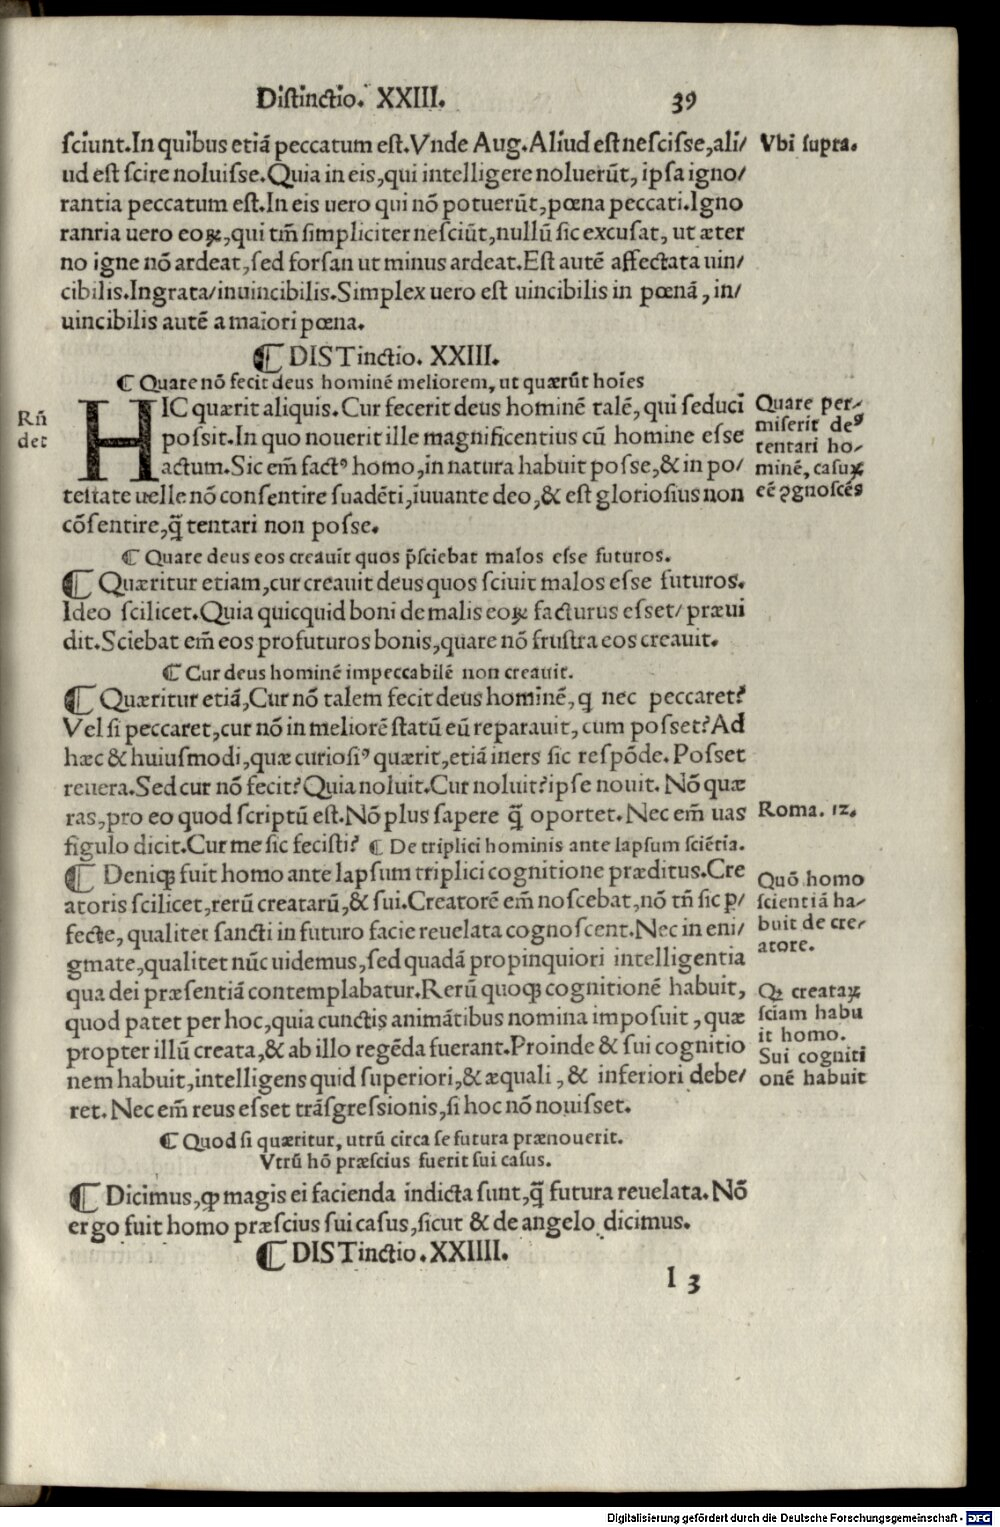 Distinctio. XXIII. 39
sciunt.In quibus etiā peccatum est.Vnde Aug.Aliud est nescisse,ali/
ud est scire noluisse.Quia in eis,qui intelligere noluerūt, ipsa igno/
rantia peccatum est.In eis uero qui nō potuerūt,pœna peccati.Igno
ranria uero eoꝝ,qui tm̄ simpliciter nesciūt,nullū sic excusat, ut æter
no igne nō ardeat,sed forsan ut minus ardeat.Est autē affectata uin/
cibilis.Ingrata/inuincibilis.Simplex uero est uincibilis in pœnā, in/
uincibilis autē a maiori pœna.
Vbi supra.
¶ DISTinctio. XXIII.
¶ Quare nō fecit deus hominē meliorem, ut quærūt hoīes
HIC quærit aliquis. Cur fecerit deus hominē talē, qui seduci
possit.In quo nouerit ille magnificentius cū homine esse
actum.Sic em̄ factꝰ homo,in natura habuit posse,& in po/
testate uelle nō consentire suadēti,iuuante deo,& est gloriosius non
cōsentire,q̄ tentari non posse.
Rn̄
det
Quare per/
miserit deꝰ
tentari ho/
minē, casuꝝ
eē ꝯgnoscēs
¶ Quare deus eos creauit quos p̄sciebat malos esse futuros.
¶ Quæritur etiam,cur creauit deus quos sciuit malos esse futuros.
Ideo scilicet.Quia quicquid boni de malis eoꝝ facturus esset/ præui
dit.Sciebat em̄ eos profuturos bonis,quare nō frustra eos creauit.
¶ Cur deus hominē impeccabilē non creauit.
¶ Quæritur etiā,Cur nō talem fecit deus hominē, q nec peccaret?
Vel si peccaret,cur nō in meliorē statū eū reparauit, cum posset?Ad
hæc & huiusmodi,quæ curiosiꝰ quærit,etiā iners sic respōde.Posset
reuera.Sed cur nō fecit?Quia noluit.Cur noluit?ipse nouit. Nō quæ
ras,pro eo quod scriptū est.Nō plus sapere q̄ oportet.Nec em̄ uas
figulo dicit.Cur me sic fecisti? ¶ De triplici hominis ante lapsum sciētia.
Roma. 12.
¶ Deniqꝫ fuit homo ante lapsum triplici cognitione præditus.Cre
atoris scilicet,rerū creatarū,& sui.Creatorē em̄ noscebat,nō tn̄ sic ꝑ/
fecte, qualiter sancti in futuro facie reuelata cognoscent.Nec in eni/
gmate,qualitet nūc uidemus,sed quadā propinquiori intelligentia
qua dei præsentiā contemplabatur.Rerū quoqꝫ cognitionē habuit,
quod patet per hoc,quia cunctis animātibus nomina imposuit,quæ
propter illū creata,& ab illo regēda fuerant.Proinde & sui cognitio
nem habuit,intelligens quid superiori,& æquali, & inferiori debe/
ret. Nec em̄ reus esset trāsgressionis,si hoc nō nouisset.
Quō homo
scientiā ha/
buit de cre/
atore.
Qꝫ creataꝝ
sciam habu
it homo.
Sui cogniti
onē habuit
¶ Quod si quæritur, utrū circa se futura prænouerit.
Vtrū hō præscius fuerit sui casus.
¶ Dicimus,ꝙ magis ei facienda indicta sunt,q̄ futura reuelata.Nō
ergo fuit homo præscius sui casus,sicut & de angelo dicimus.
¶ DISTinctio.XXIIII.
I 3
Digitalisierung gefördert durch die Deutsche Forschungsgemeinschaft - DFG